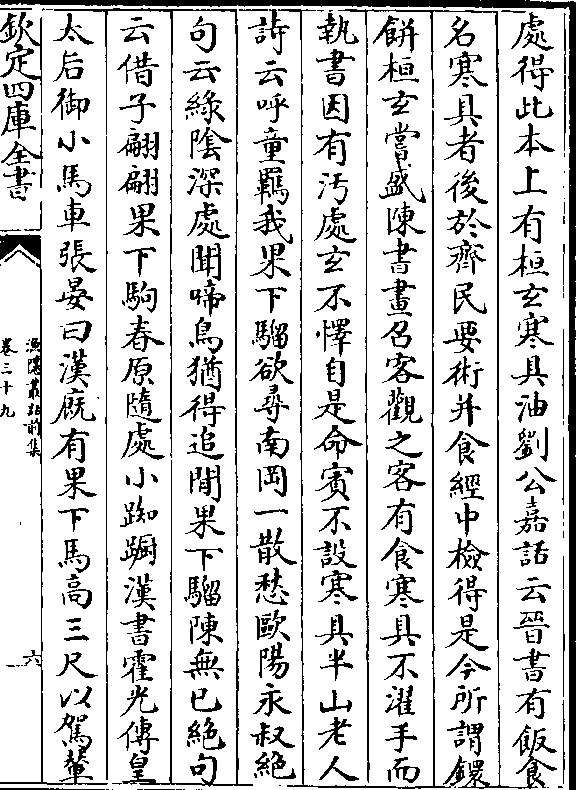 處得此本上有桓玄寒具油劉公嘉話云晉書有飯食
名寒具者後於齊民要術并食經中檢得是今所謂鐶
餅桓玄嘗盛陳書畫召客觀之客有食寒具不濯手而
執書因有汚處玄不懌自是命賓不設寒具半山老人
詩云呼童羈我果下騮欲尋南岡一散愁歐陽永叔絶
句云緑陰深處聞啼鳥猶得追閒果下騮陳無已絶句
云借子翩翩果下駒春原隨處小踟蹰漢書霍光傳皇
太后御小馬車張晏曰漢廐有果下馬高三尺以駕輦
欽定四庫全書
漁隱叢話前集
卷三十九
六